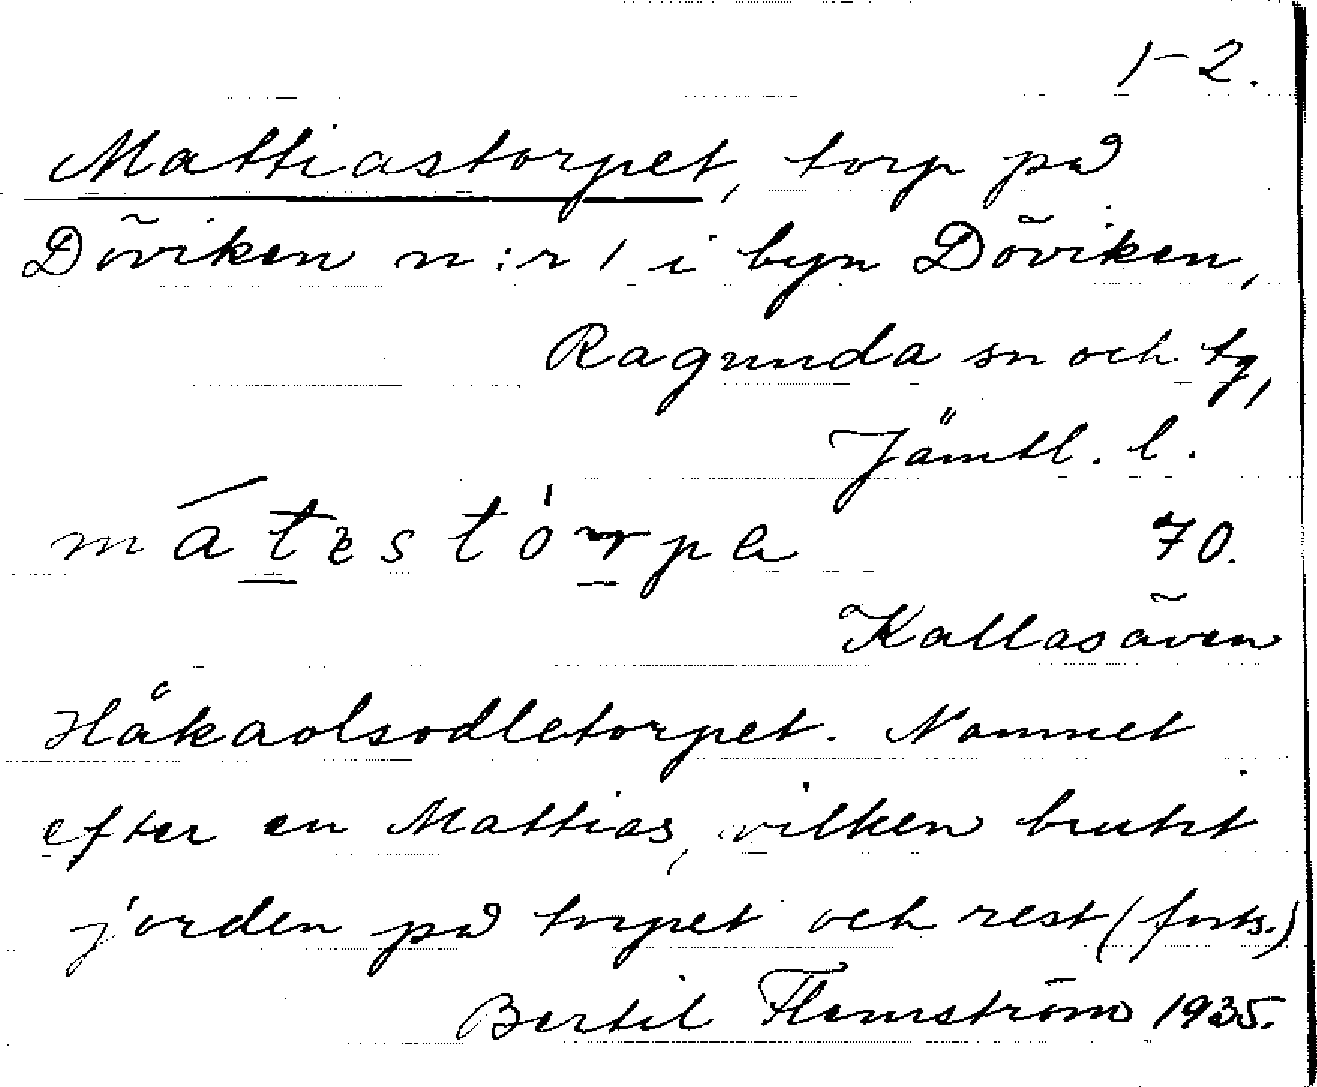 1-2.
Mattiastorpet, torp på
Döviken n:r 1 i byn Döviken,
Ragunda sn och tg,
Jämtl. l.
mátestórpa 70.
Kallas även
Håkaolsodletorpet. Namnet
efter en Mattias, vilken brutit
jorden på torpet och rest (forts.)
Bertil Flemström 1935.